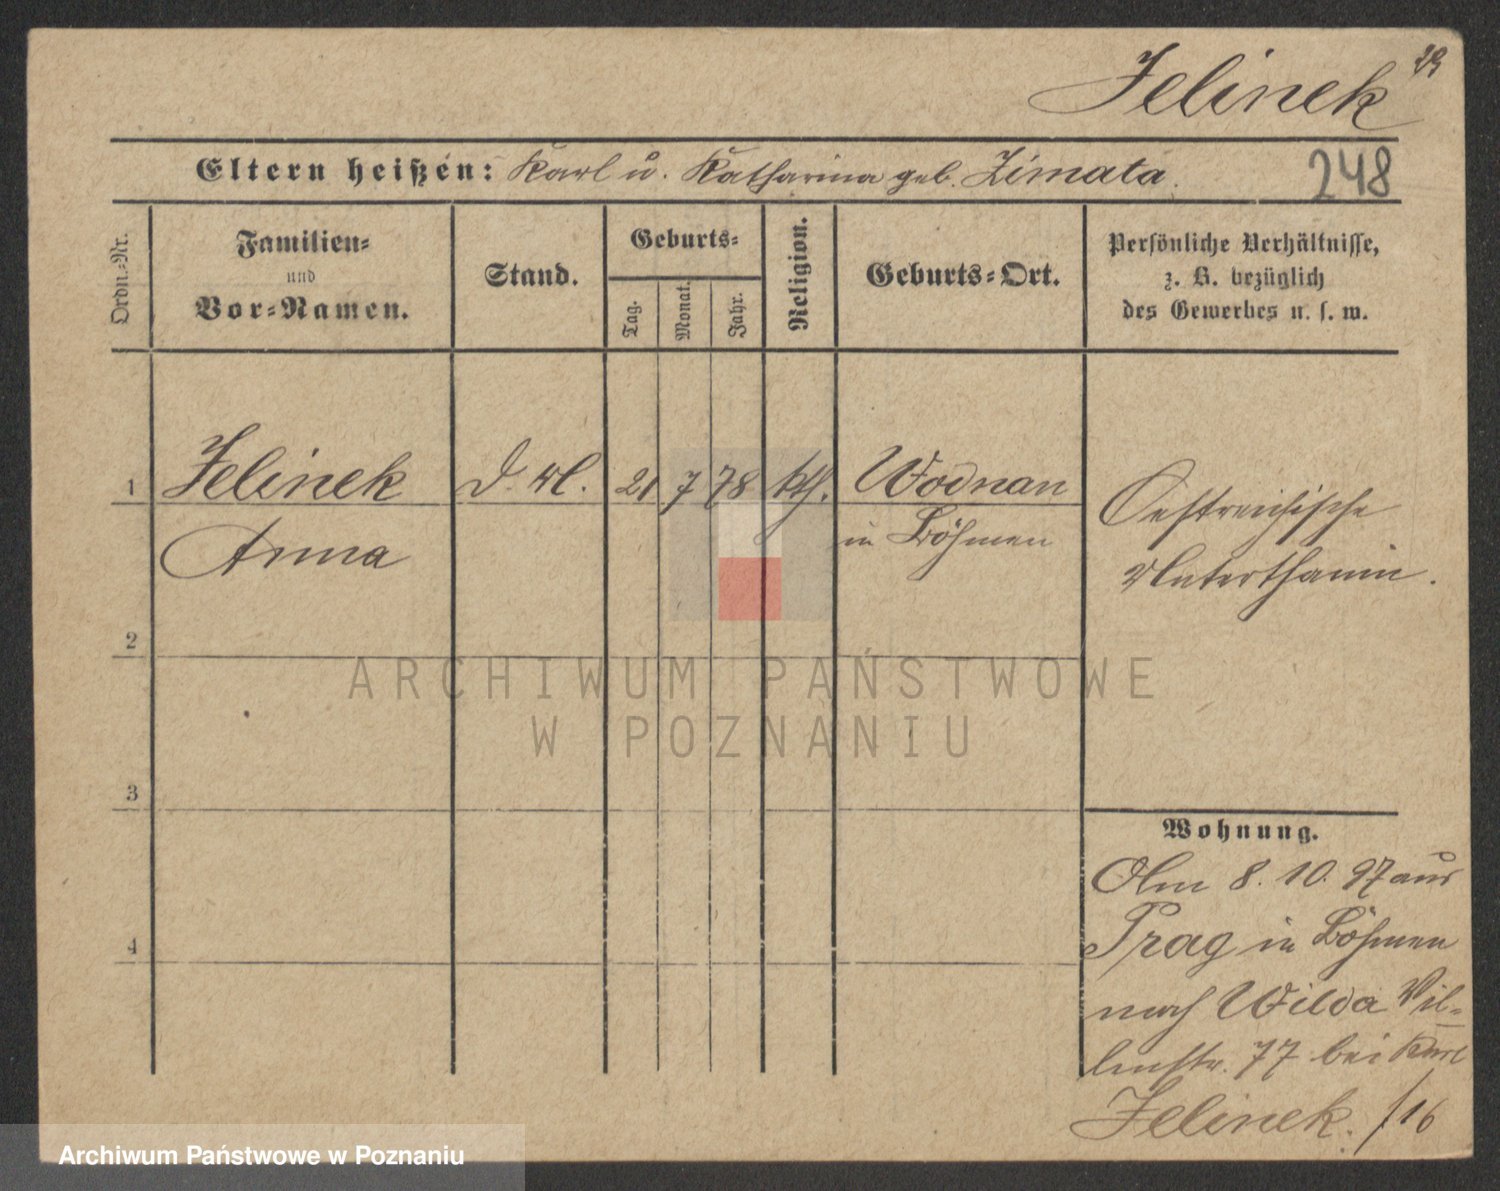 Jelinek
Eltern heißen: Karl u. Katharina geb. Zimata.
248
Ordn.-Nr.
Familien-
und
Vor-Namen.
Stand.
Geburts-
Tag.
Monat.
Jahr.
Religion.
Geburts-Ort.
Persönliche Verhältnisse,
z. B. bezüglich
des Gewerbes u. s. w.
1 Jelinek 21 7 78 kth. Wodnan
Anna in Böhmen
Oestreichische
Unterthanin.
2
ARCHIWUM PAŃSTWOWE
W POZNANIU
3
Wohnung.
8. 10. 97 aus
4
Prag in Böhmen
nach Wilda Vil-
77 bei Karl
Jelinek. /16
Archiwum Państwowe w Poznaniu